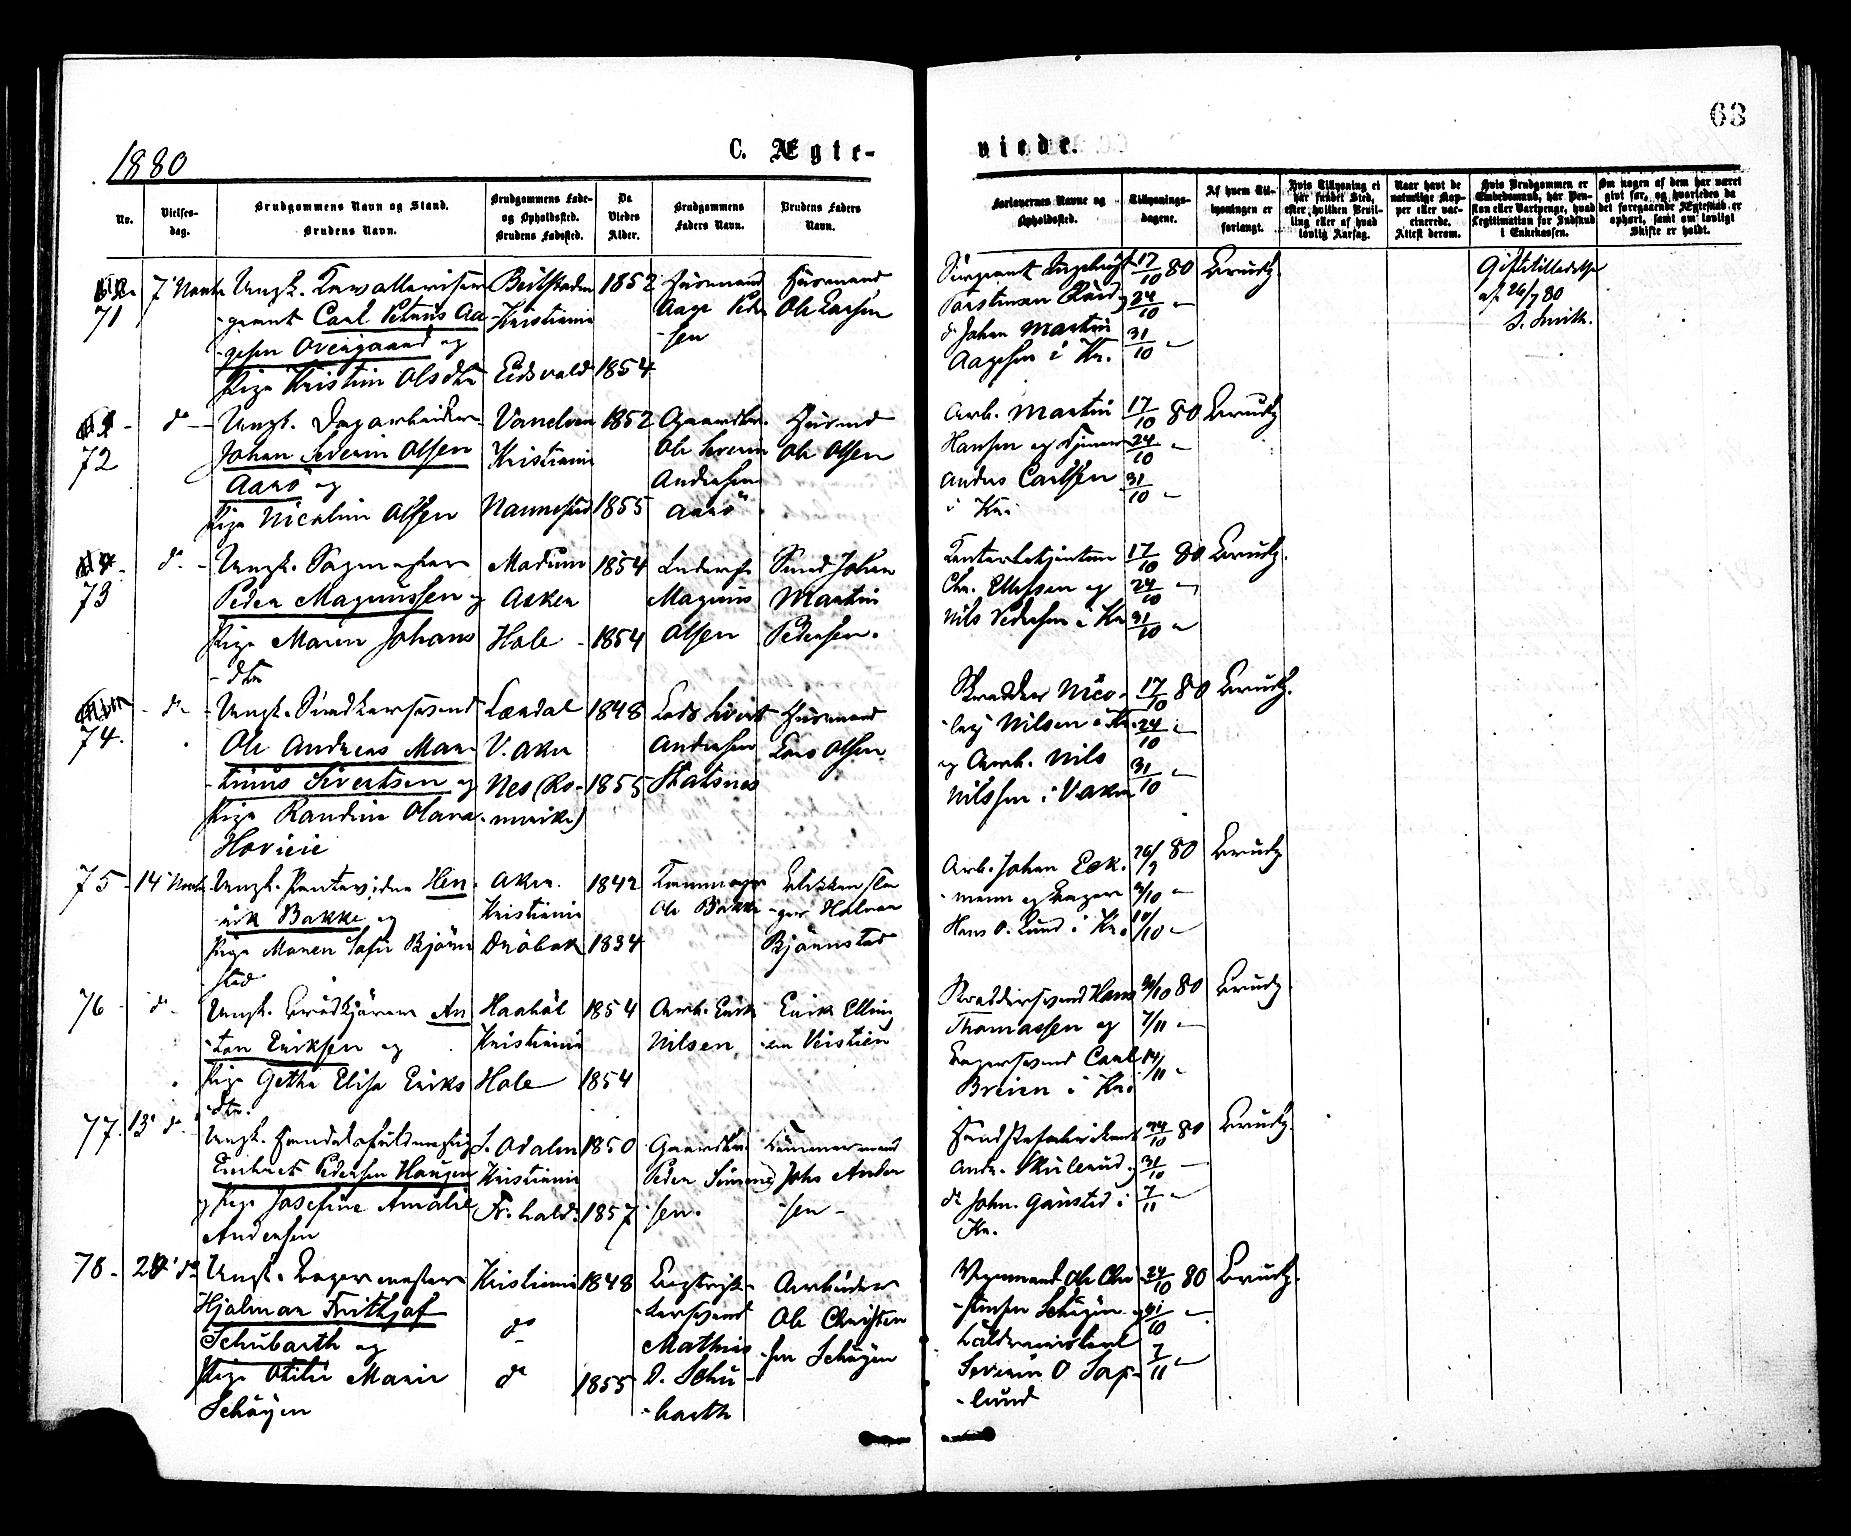 63
1880
C. Ægte-
viede.
No.
Vielses-
dag.
Brudgommens Navn og Stand.
Brudens Navn.
Brudgommens Føde-
og Opholdssted.
Brudens Fødested.
Da
Viedes
Alder.
Brudgommens
Faders Navn.
Brudens Faders
Navn.
Forlovernes Navne og
Opholdssted.
Tillysnings-
dagene.
Af hvem Til-
lysningen er
forlangt.
Hvis Tillysning ei
har fundet Sted,
efter hvilken Bevil-
ling eller af hvad
lovlig Aarsag.
Naar havt de
naturlige Kop-
per eller vac-
cinerede.
Attest derom.
Hvis Brudgommen er
Embedsmand, har Pen-
sion eller Vartpenge, hvad
Legitimation for Indskud
i Enkekassen.
Om nogen af dem har været
gift før, og hvorledes da
det foregaaende Ægteskab er
ophørt, samt om lovligt
Skifte er holdt.
71
7' Novbr
Ungk. Kavalleriser-
geant Carl Petrus Aa-
gesen Overgaard og
Pige Kristin Olsdtr
Beitstaden
Kristiania
Eidsvold
1852
1854
Husmand
Aage Peder
sen
Husmand
Ole Larsen
Sergeant
d. Johan Martin
Aagesen i Kr.
17/10 80
24/10 "
31/10 "
Brudg.
Giftetilladelse
af 26/7 80
S. Smith.
72
do
Ungk. Dagarbeider
Johan Severin Olsen
Aarø og
Pige Nicoline Olsen
Kristiania
Nannestad
1852
1855
Gaardbr.
Ole Severin
Andersen
Aarø
Husmd
Ole Olsen
Arb. Martin
Hansen og
Anders Carlsen
i Kr.
17/10 80
24/10 "
31/10 "
Brudg.
73
do
Ungk. Sagmester
Peder Magnussen og
Pige Maren Johans
dtr
Modum
Asker
Hole
1854
1854
Magnus
Olsen
Smed Johan
Martin
Pedersen.
Chr. Ellefsen og
Nils Pedersen i Kr
17/10 80
24/10 "
31/10 "
Brudg.
74.
do
Ungk. Snedkersvend
Ole Andreas Mar-
tinus Sivertsen og
Pige Randine Olava
Hovieie
Lærdal
V. Aker
Nes (Ro-
merike)
1848
1855
Lods Sivert
Andersen
Statsnes
Husmand
Lars Olsen
Skrædder Nico-
lay Nilsen i Kr.
og Arb. Nils
Nilssen i V. Aker
17/10 80
24/10 "
31/10 "
Brudg.
75
14' Novbr.
Ungk. Hen-
rik Bakke og
Pige Maren Sofie Bjørn
stad
Aker.
Kristiania
Drøbak
1842
1834
Ole Bakke
Halvor
Bjørnstad
Arb. Johan Eck-
mann og Bager
Hans O. Lund i Kr.
26/9 80
3/10 "
10/10 "
Brudg.
76
do
Ungk. Brødkjører An
ton Eriksen og
Pige Gethe Elise Eriks
dtr.
Kristiania
Hole
1854
1854
Arb. Erik
Nilsen
Erik Elling
sen Veistien
Skræddersvend Hans
Thomassen og
Bagersvend Carl
Breien i Kr.
31/10 80
7/11 "
14/11 "
Brudg.
77.
13' do
Ungk. Handelsfuldmægtig
Engbret Pedersen Haugen
og Pige Josefine Amalie
Andersen
S. Odalen
Kristiania
Fr.hald.
1850
1857
Gaardbr.
Peder Simon
sen.
Tømmermand
Johs Ander
sen
Andr. Skulerud og
do John. Gansted i
Kr.
24/10 80
31/10 "
7/11 "
Brudg.
78
20' do
Ungk. Bagermester
Hjalmar Frithjof
Schubarth og
Pige Otilie Marie
Schøyen
Kristiania
do
do
1848
1855
Bogtryk-
kersvend
Mathias
D. Schu-
barth
Arbeider
Ole Christen
sen Schøyen
Vognmand Ole Chri
stensen Schøyen og
Severin O Sop-
lund
24/10 80
31/10 "
7/11 "
Brudg.